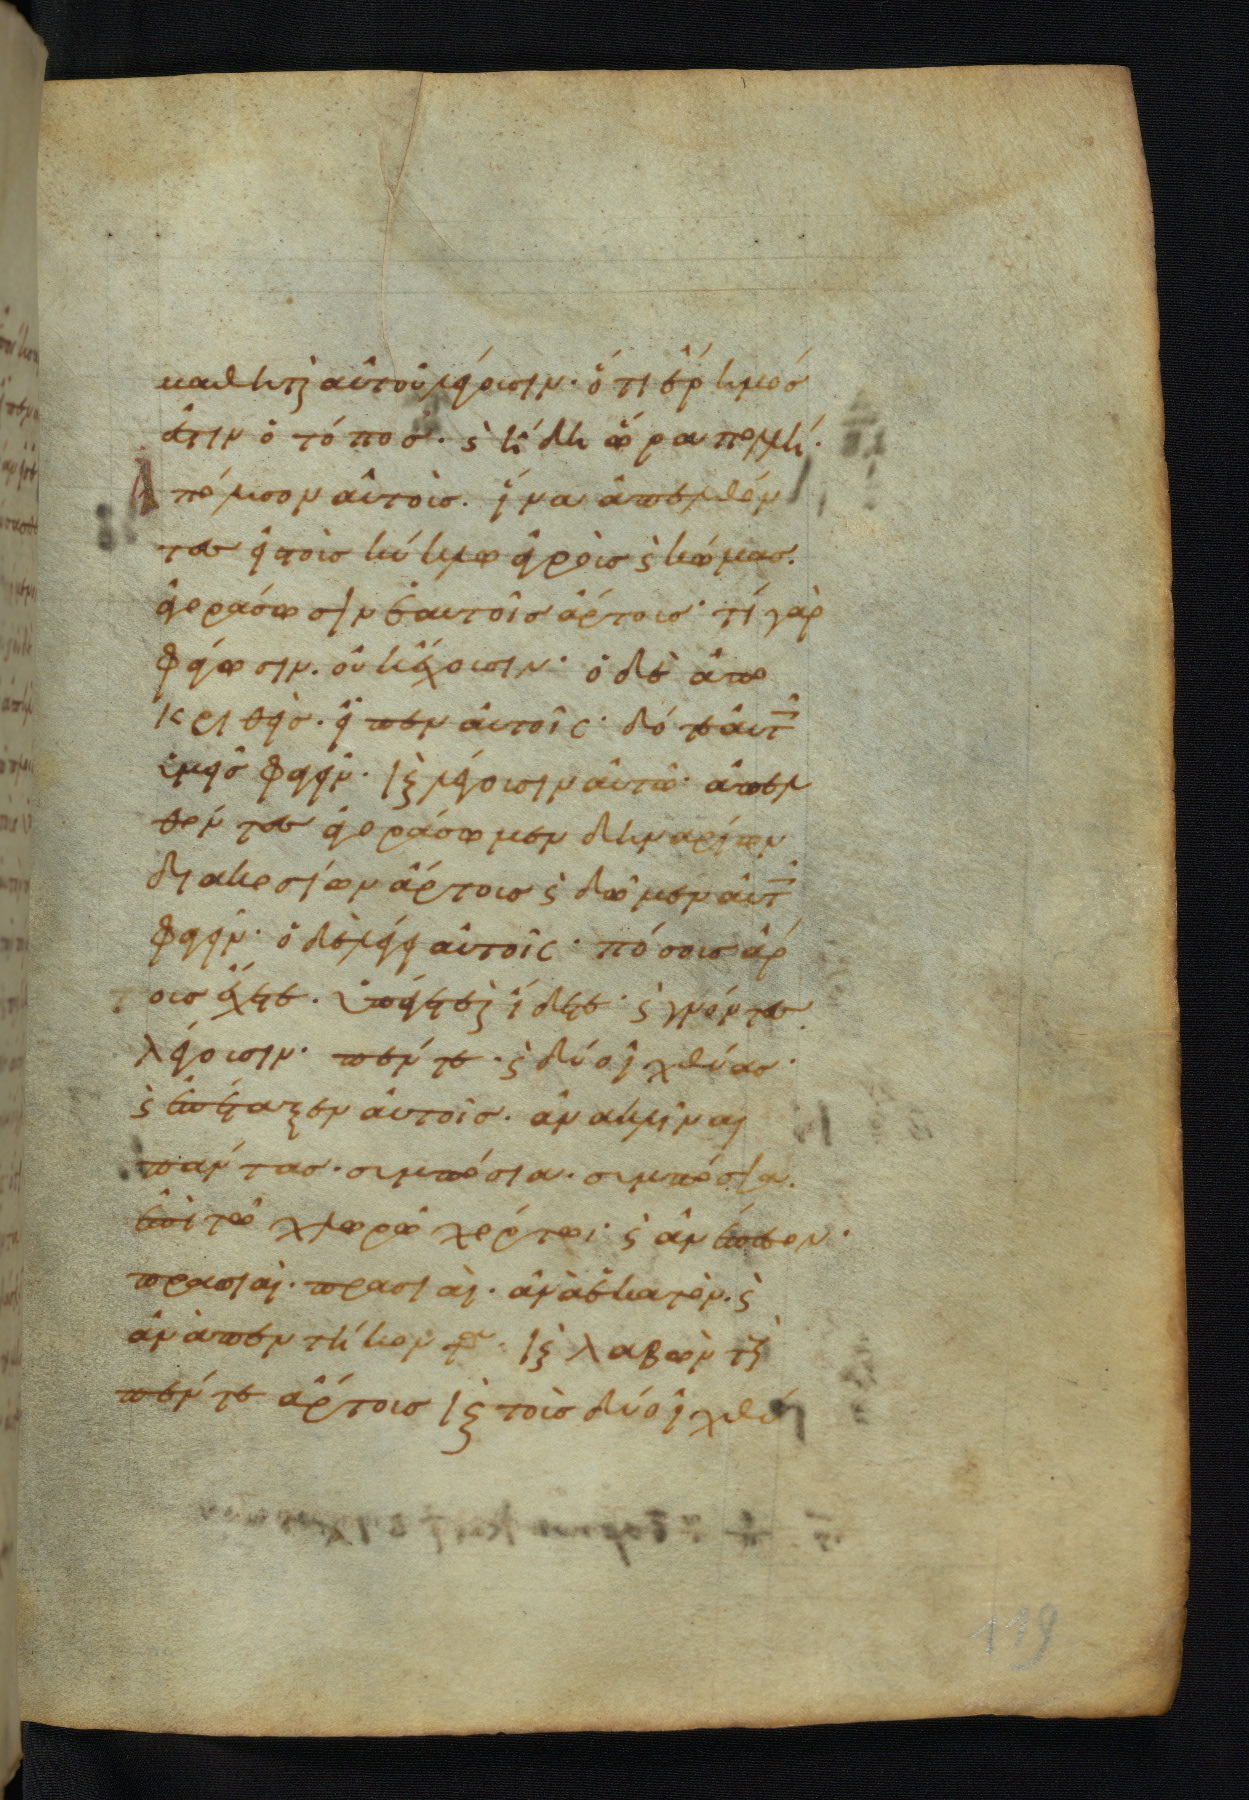 μαθηταὶ αὐτοῦ λέγουσιν· ὅτι ἔρημός
ἐστιν ὁ τόπος· καὶ ἤδη ὥρα πολλή·
Ἀπόλυσον αὐτούς· ἵνα ἀπελθόν
τες εἰς τοὺς κύκλω ἀγροὺς καὶ κώμας·
ἀγοράσωσιν ἑαυτοῖς ἄρτους· τί γὰρ
φάγωσιν· οὐκ ἔχουσιν· ὁ δὲ ἀπο
κριθεὶς· εἶπεν αὐτοῖς· δότε αὐτοῖς
ὑμεῖς φαγεῖν· καὶ λέγουσιν αὐτῶ· ἀπελ
θόντες ἀγοράσωμεν δηναρίων
διακοσίων ἄρτους καὶ δῶμεν αὐτοῖς
φαγεῖν· ὁ δὲ λέγει αὐτοῖς· πόσους ἄρ
τους ἔχετε· ὑπάγετε καὶ ἴδετε· καὶ γνόντες
λέγουσιν· πέντε· καὶ δύο ἰχθύας·
καὶ ἐπέταξεν αὐτοῖς· ἀνακλῖναι
πάντας· συμπόσια· συμπόσια·
ἐπὶ τῶ χλωρῶ χόρτωι· καὶ ἀνέπεσον·
πρασιαὶ· πρασιαὶ· ἀνὰ ἑκατόν· καὶ
ἀνὰ πεντήκοντα· καὶ λαβὼν τοὺς
πέντε ἄρτους καὶ τοὺς δύο ἰχθύ
119